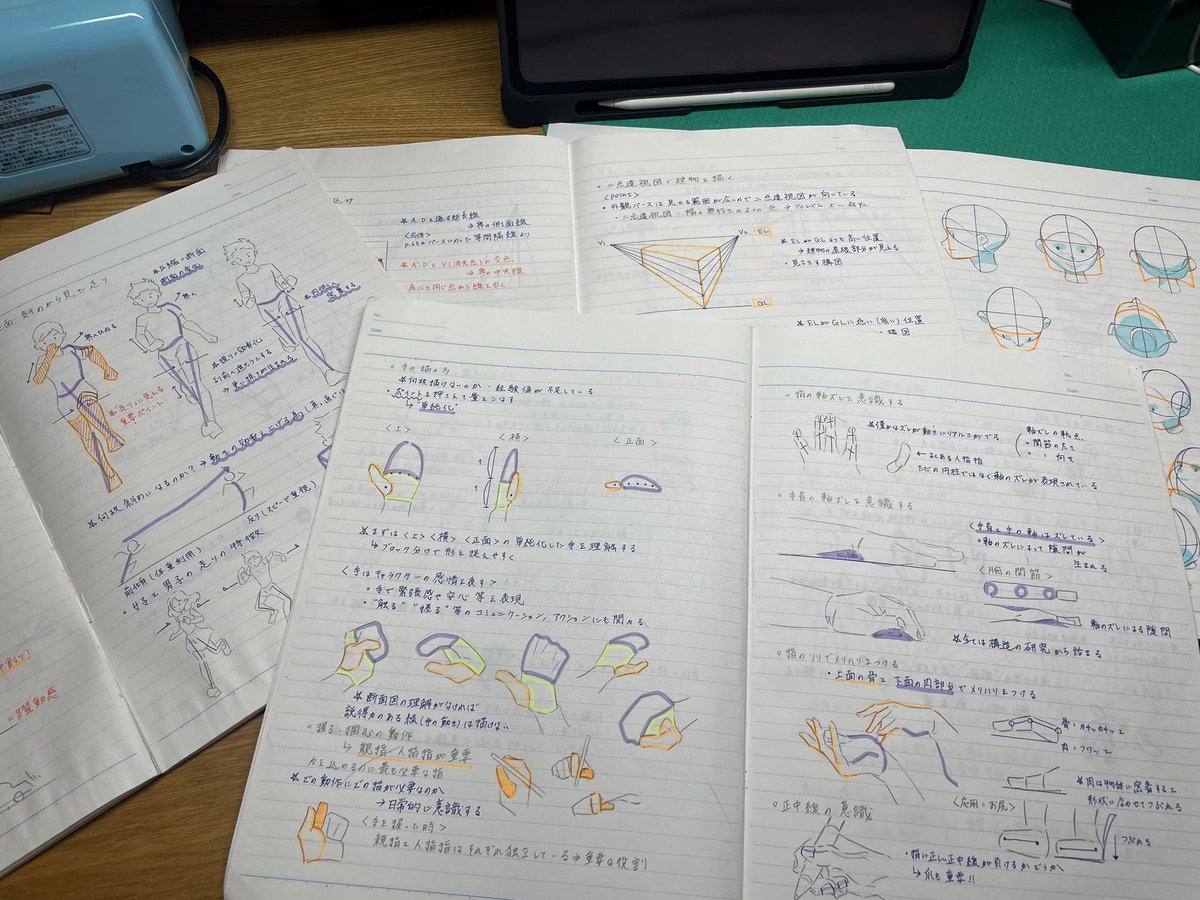 斜めから見た走り
※圧縮の断面
断面の変化
奥へ
奥へひねる
※円得に
定着する
"走り"に見える
重要ポイント
※何故斜めにするのか?→動きの効果を上げる為
反り(スピード重視)
前傾(体重利用)
・女子と男子の走りの特徴
=躍動感
No.
Date
※A、Dを通る延長線
→奥の側面線
<応用>
等間隔線より
※A'-D'とV(消失点)の交点
→奥の中央線
・二点透視図で建物を描く
<point>
・外観パースは見せる範囲が広いので二点透視図が向いている
・二点透視図・幅と奥行きの2つの点→アイレベル上に存在
V1
V2
EL
GL
※ELがGLよりも高い位置
→建物の屋根部分が見える
・見下ろす構図
※ELがGLに近い(低い)位置
No.
Date
○手の描き方
※何故描けないのか・経験値が不足している
・ポイントを押さえて量をこなす
↳"単純化"
<上>
<横>
<正面>
1
1
※まずは<上><横><正面>の単純化した手を理解する
↳ブロック分けで形を捉えやすく
<手はキャラクターの感情を表す>
・手で緊張感や安心等を表現
・"触る""握る"等のコミュニケーション、アクションにも関わる
※断面図の理解がなければ
説得力のある絵(手の動き)は描けない
○握る・掴むの動作
↳親指・人指指が重要
力を込めるのに最も必要な指
※どの動作にどの指が必要なのか
→日常的に意識する
<手を握った時>
親指と人指指はそれぞれ独立している→重要な役割
No.
Date
○指の軸ズレを意識する
※僅かなズレが動きにリアルさがでる
軸ズレの軌点
・関節の太さ
・〃 向き
←よくある人指指
ただの円柱ではなく軸のズレが表現されている
○手首の軸ズレを意識する
<手首と手の軸はズレている>
・軸のズレによって隙間が
生まれる
<腕の関節>
軸のズレによる隙間
※全ては構造の研究から始まる
○指のソリでメリハリをつける
・上面の骨と下面の肉部分でメリハリをつける
骨:カチッカチッと
肉:フワッと
※肉は物体に密着すると
形状に合わせてつぶれる
<応用:お尻>
つぶれる
○正中線の意識
・指に正しい正中線が引けるかどうか
↳爪も重要!!
No.
Date